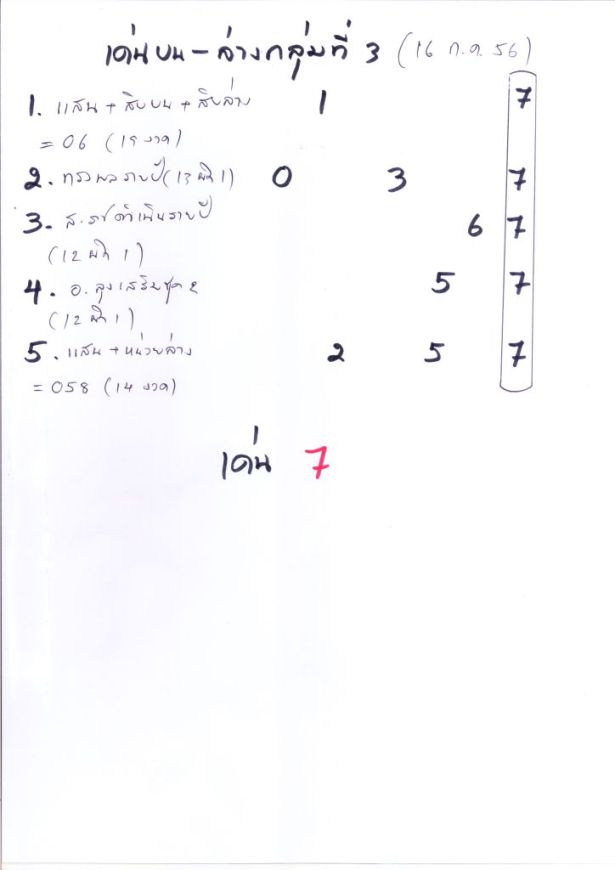 เด่นบน - ล่างกลุ่มที่ 3 (16 ก.ค. 56)
1. แสน + สิบบน + สิบล่าง 1 7
= 06 (19 งวด)
2. ทรงพลรายปี (13 ผิด 1) 0 3 7
3. ส. ราชดำเนินรายปี 6 7
(12 ผิด 1)
4. อ. ลุงเสริมชุด 2 5 7
(12 ผิด 1)
5. แสน + หน่วยล่าง 2 5 7
= 058 (14 งวด)
เด่น 7